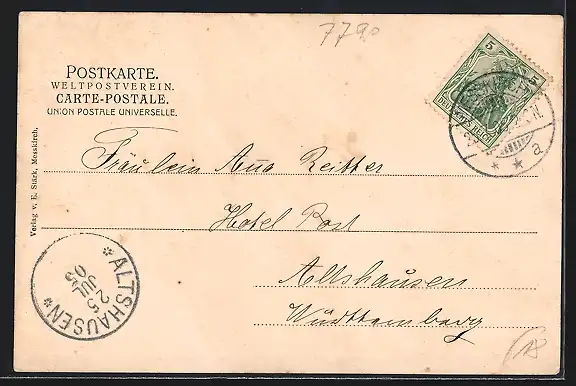 7790
POSTKARTE.
WELTPOSTVEREIN.
CARTE-POSTALE.
UNION POSTALE UNIVERSELLE.
5
5
DEUTSCHES REICH
a
Verlag v. E. Stärk, Messkirch.
Fräulein Anna Reitter
Hotel Post
Altshausen
Württemberg
ALTSHAUSEN
25
JUL
03
18